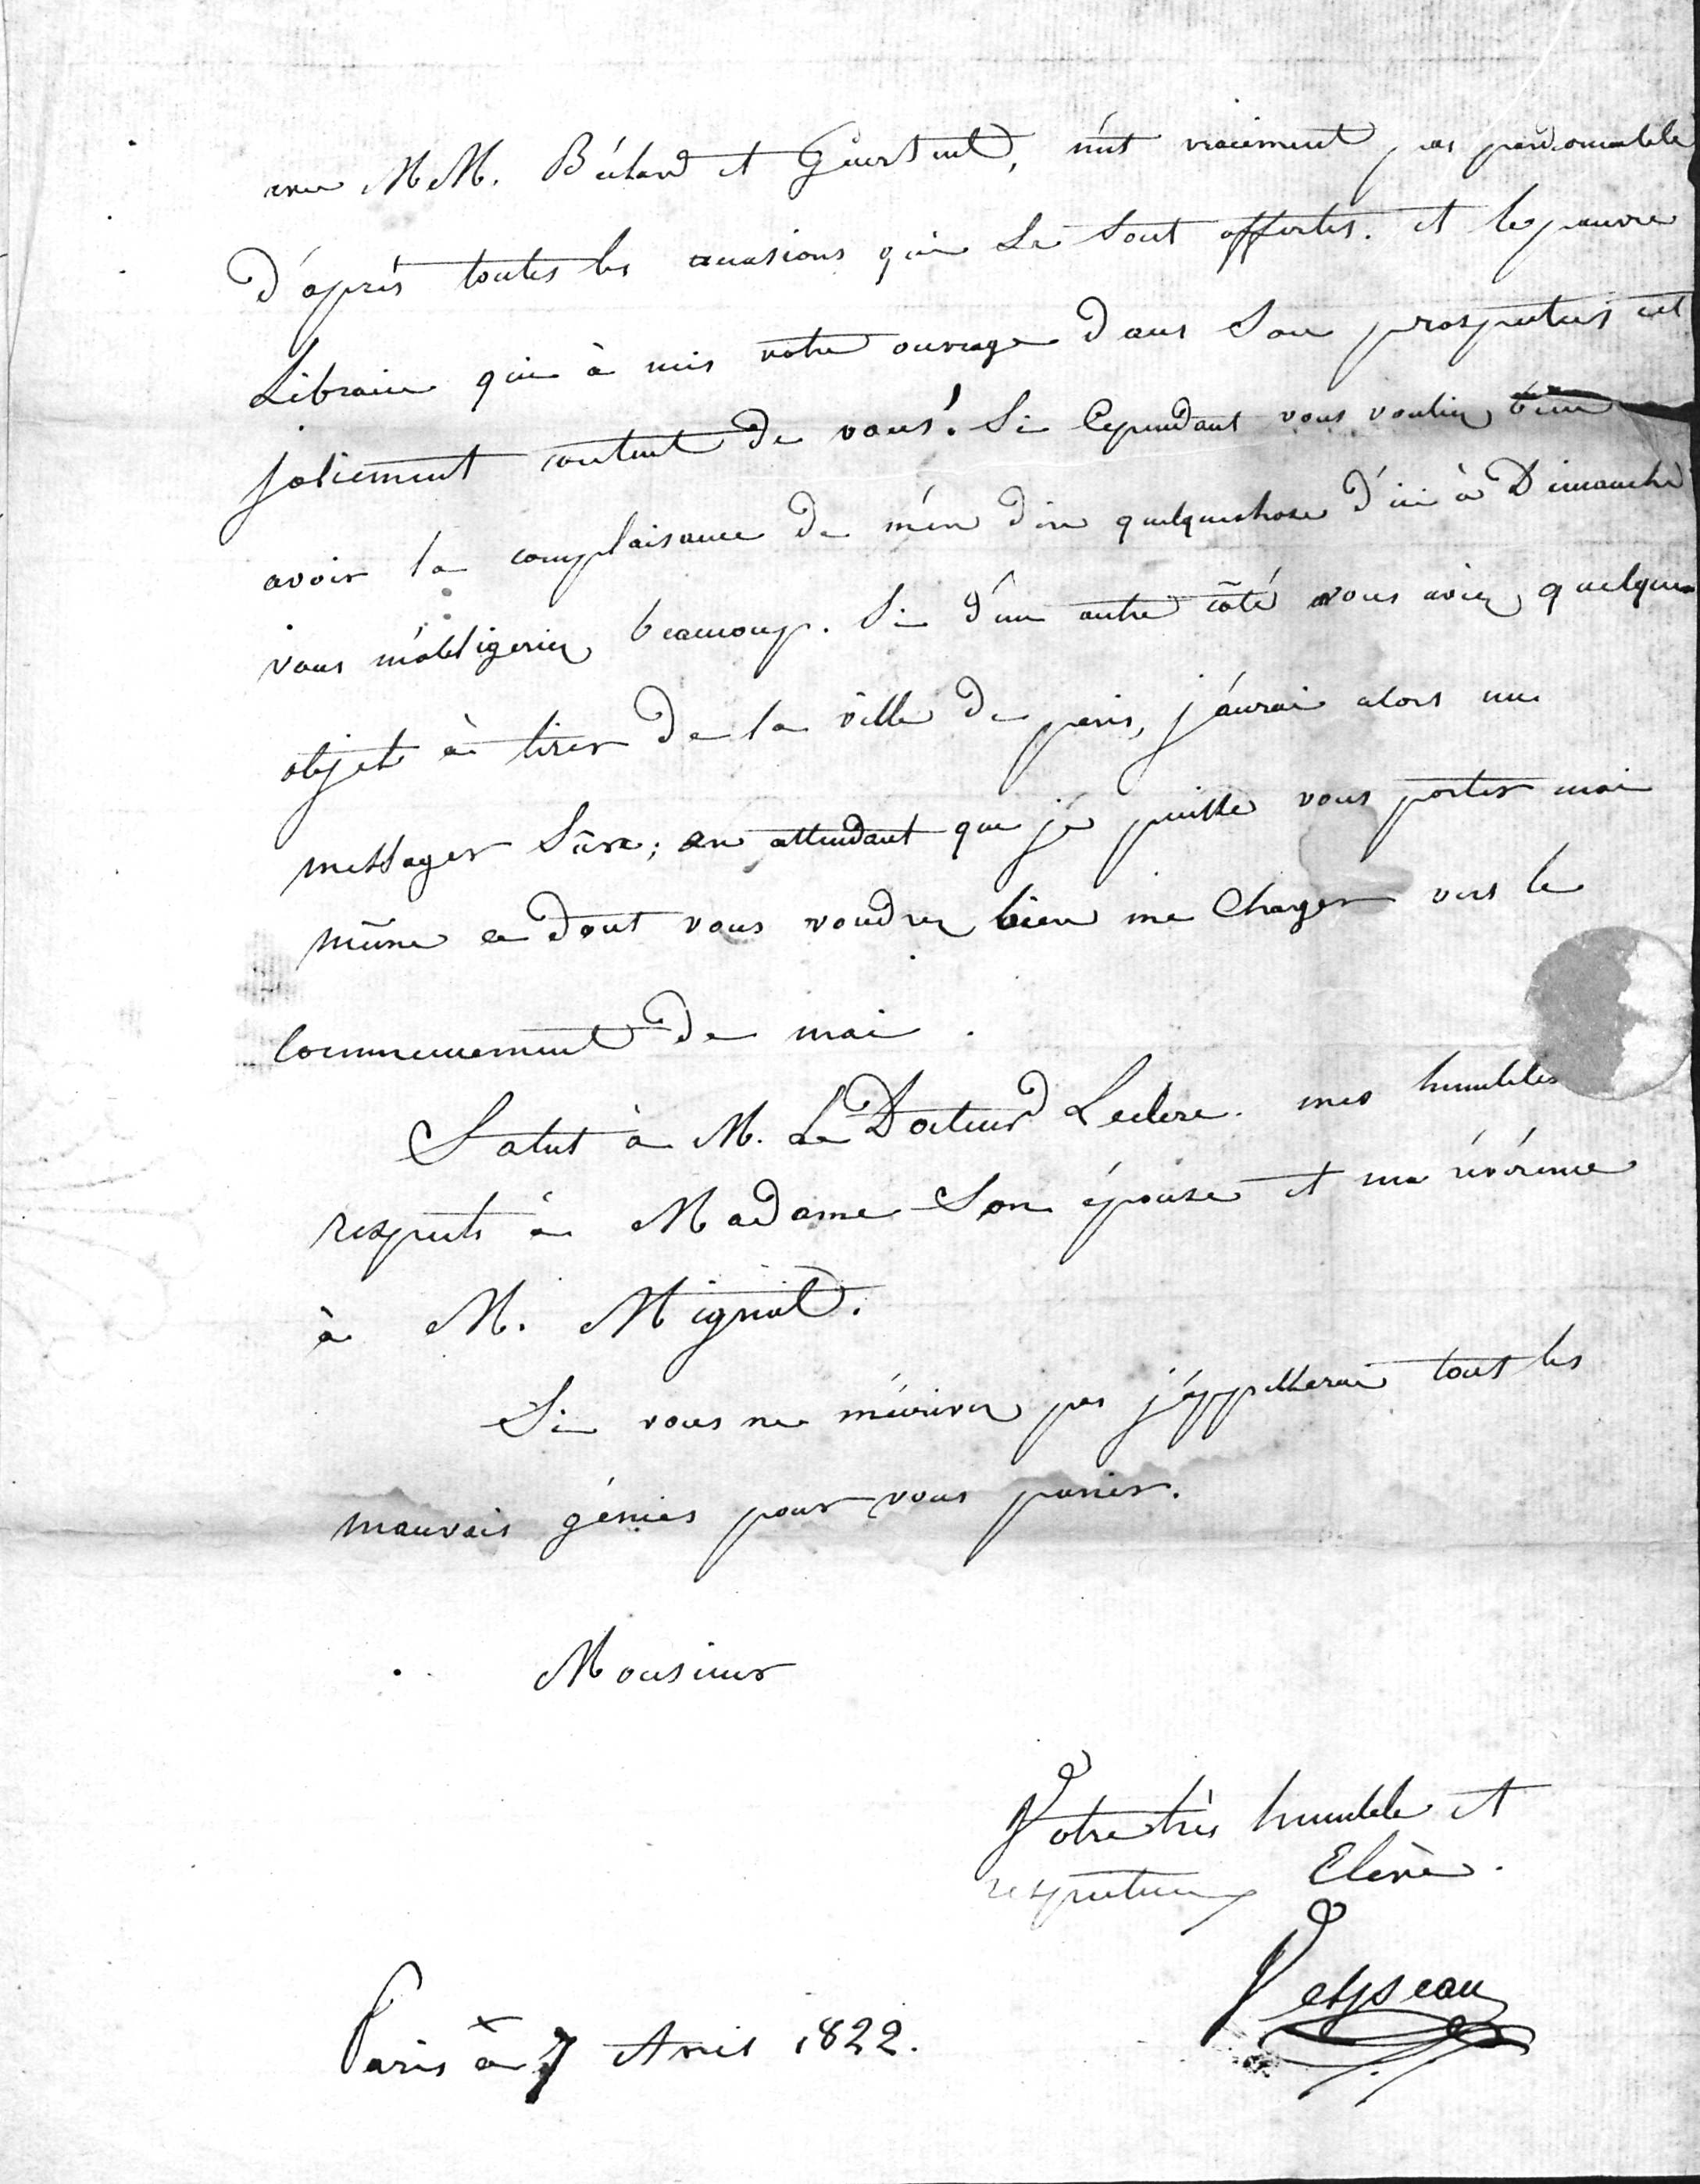 avec MM. Béclard et Guersent, n'est vraiment pas pardonnable
d'après toutes les occasions qui se sont offertes. et le pauvre
Libraire qui à mis votre ouvrage dans son prospectus est
joliement content de vous! Si Cependant vous vouliez bien
avoir la complaisance de m'en dire quelquechose d'ici à Dimanche
vous m'obligeriez beaucoup. Si d'un autre côté vous aviez quelque
objet à tirer de la ville de paris, j'aurai alors un
messager sûre; en attendant que je puisse vous porter moi
même ce dont vous voudrez bien me Charger vers le
Commencement de mai.
Salut à M. Le Docteur Leclerc. mes humbles
respects à Madame Son épouse et ma révérence
à M. Mignot.
Si vous ne m'écrivez pas j'appellerai tous les
mauvais génies pour vous punir.
Monsieur
Votre très humble et
respectueux Elève.
Velpeau
Paris ce 7 Avril 1822.